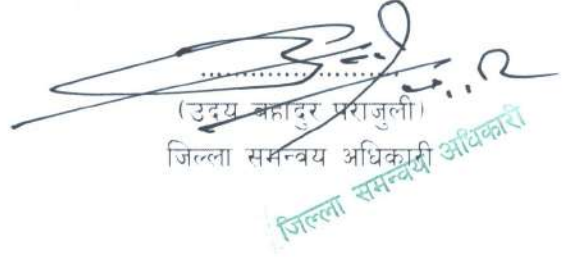 (उदय बहादुर पराजुली)
जिल्ला समन्वय अधिकारी
जिल्ला समन्वय अधिकारी